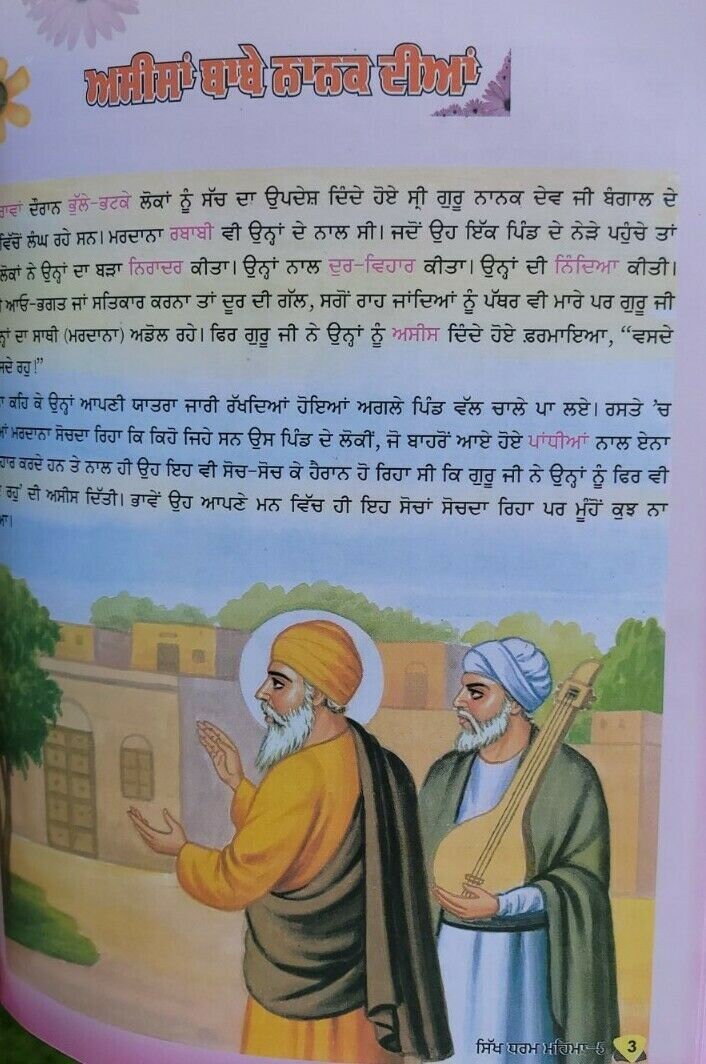 ਅਸੀਸਾਂ ਬਾਬੇ ਨਾਨਕ ਦੀਆਂ
ਦੌਰਾਨ ਭੁੱਲੇ-ਭਟਕੇ ਲੋਕਾਂ ਨੂੰ ਸੱਚ ਦਾ ਉਪਦੇਸ਼ ਦਿੰਦੇ ਹੋਏ ਸ੍ਰੀ ਗੁਰੂ ਨਾਨਕ ਦੇਵ ਜੀ ਬੰਗਾਲ ਦੇ
ਵਿੱਚੋਂ ਲੰਘ ਰਹੇ ਸਨ। ਮਰਦਾਨਾ ਰਬਾਬੀ ਵੀ ਉਨ੍ਹਾਂ ਦੇ ਨਾਲ ਸੀ। ਜਦੋਂ ਉਹ ਇੱਕ ਪਿੰਡ ਦੇ ਨੇੜੇ ਪਹੁੰਚੇ ਤਾਂ
ਲੋਕਾਂ ਨੇ ਉਨ੍ਹਾਂ ਦਾ ਬੜਾ ਨਿਰਾਦਰ ਕੀਤਾ। ਉਨ੍ਹਾਂ ਨਾਲ ਦੁਰ-ਵਿਹਾਰ ਕੀਤਾ। ਉਨ੍ਹਾਂ ਦੀ ਨਿੰਦਿਆ ਕੀਤੀ।
ਆਓ-ਭਗਤ ਜਾਂ ਸਤਿਕਾਰ ਕਰਨਾ ਤਾਂ ਦੂਰ ਦੀ ਗੱਲ, ਸਗੋਂ ਰਾਹ ਜਾਂਦਿਆਂ ਨੂੰ ਪੱਥਰ ਵੀ ਮਾਰੇ ਪਰ ਗੁਰੂ ਜੀ
ਦਾ ਸਾਥੀ (ਮਰਦਾਨਾ) ਅਡੋਲ ਰਹੇ। ਫਿਰ ਗੁਰੂ ਜੀ ਨੇ ਉਨ੍ਹਾਂ ਨੂੰ ਅਸੀਸ ਦਿੰਦੇ ਹੋਏ ਫ਼ਰਮਾਇਆ, “ਵਸਦੇ
ਰਹੁ!”
ਕਹਿ ਕੇ ਉਨ੍ਹਾਂ ਆਪਣੀ ਯਾਤਰਾ ਜਾਰੀ ਰੱਖਦਿਆਂ ਹੋਇਆਂ ਅਗਲੇ ਪਿੰਡ ਵੱਲ ਚਾਲੇ ਪਾ ਲਏ। ਰਸਤੇ ’ਚ
ਮਰਦਾਨਾ ਸੋਚਦਾ ਰਿਹਾ ਕਿ ਕਿਹੋ ਜਿਹੇ ਸਨ ਉਸ ਪਿੰਡ ਦੇ ਲੋਕੀਂ, ਜੋ ਬਾਹਰੋਂ ਆਏ ਹੋਏ ਪਾਂਧੀਆਂ ਨਾਲ ਏਨਾ
ਕਰਦੇ ਹਨ ਤੇ ਨਾਲ ਹੀ ਉਹ ਇਹ ਵੀ ਸੋਚ-ਸੋਚ ਕੇ ਹੈਰਾਨ ਹੋ ਰਿਹਾ ਸੀ ਕਿ ਗੁਰੂ ਜੀ ਨੇ ਉਨ੍ਹਾਂ ਨੂੰ ਫਿਰ ਵੀ
ਰਹੁ' ਦੀ ਅਸੀਸ ਦਿੱਤੀ। ਭਾਵੇਂ ਉਹ ਆਪਣੇ ਮਨ ਵਿੱਚ ਹੀ ਇਹ ਸੋਚਾਂ ਸੋਚਦਾ ਰਿਹਾ ਪਰ ਮੂੰਹੋਂ ਕੁਝ ਨਾ
ਸਿੱਖ ਧਰਮ ਮਹਿਮਾ-5 3